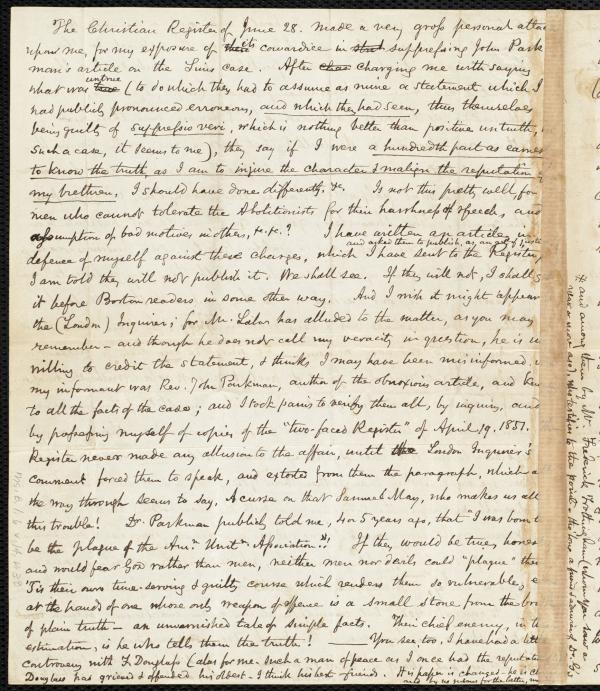 The Christian Register of June 28. made a very gross personal attac
upon me, for my exposure of its cowardice in suppressing John Park
man's article on the Sims case. After charging me with saying
what was untrue (to do which they had to assume as mine a statement which I
had publicly pronounced erroneous, and which they had seen, thus themselves
being guilty of suppressio veri, which is nothing better than positive untruth, in
such a case, it seems to me), they say if I were a hundredth part as earnes
to know the truth, as I am to injure the character & malign the reputation
my brethren, I should have done differently, &c. Is not this pretty well, for
men who cannot tolerate the Abolitionists for their harshness of speech, and
assumption of bad motives in others, &c. &c.? I have written an article, in
and asked them to publish, as an act of justice
defence of myself against these charges, which I have sent to the Register,
I am told they will not publish it. We shall see. If they will not, I shall
it before Boston readers in some other way. And I wish it might appear
the (London) Inquirer; for Mr. Lalor has alluded to the matter, as you may
remember – and though he does not call my veracity in question, he is
willing to credit the statement, & thinks I may have been misinformed.
my informant was Rev. John Parkman, author of the obnoxious article, and
to all the facts of the case; and I took pains to verify them all, by inquiry, and
by possessing myself of copies of the "two-faced Register" of April 19, 1851.
Register never made any allusion to the affair, until the London Inquirer's
comment forced them to speak, and extorted from them the paragraph, which
the way through seems to say, A curse on that Samuel May, who makes us all
this trouble! Dr. Parkman publicly told me, 4 or 5 years ago, that "I was born to
be the plague of the Am. Unit. Association"! If they would be true, hones
and would fear God rather than men, neither men nor devils could "plague" the
'Tis their own time-serving & guilty course which renders them so vulnerable,
at the hands of one whose only weapon of offence is a small stone from the bro
of plain truth – an unvarnished tale of simple facts. Their chief enemy, in
estimation, is he who tells them the truth! — You see, too, I have had a
controversy with F. Douglass (alas for me. Such a man of peace as I once had the reputation
Douglass has grieved & offended his oldest & I think his best friends. His paper is changed – he is
and by no means for the better,
& and among them by Mr. Frederick Frothingham, whom you saw a